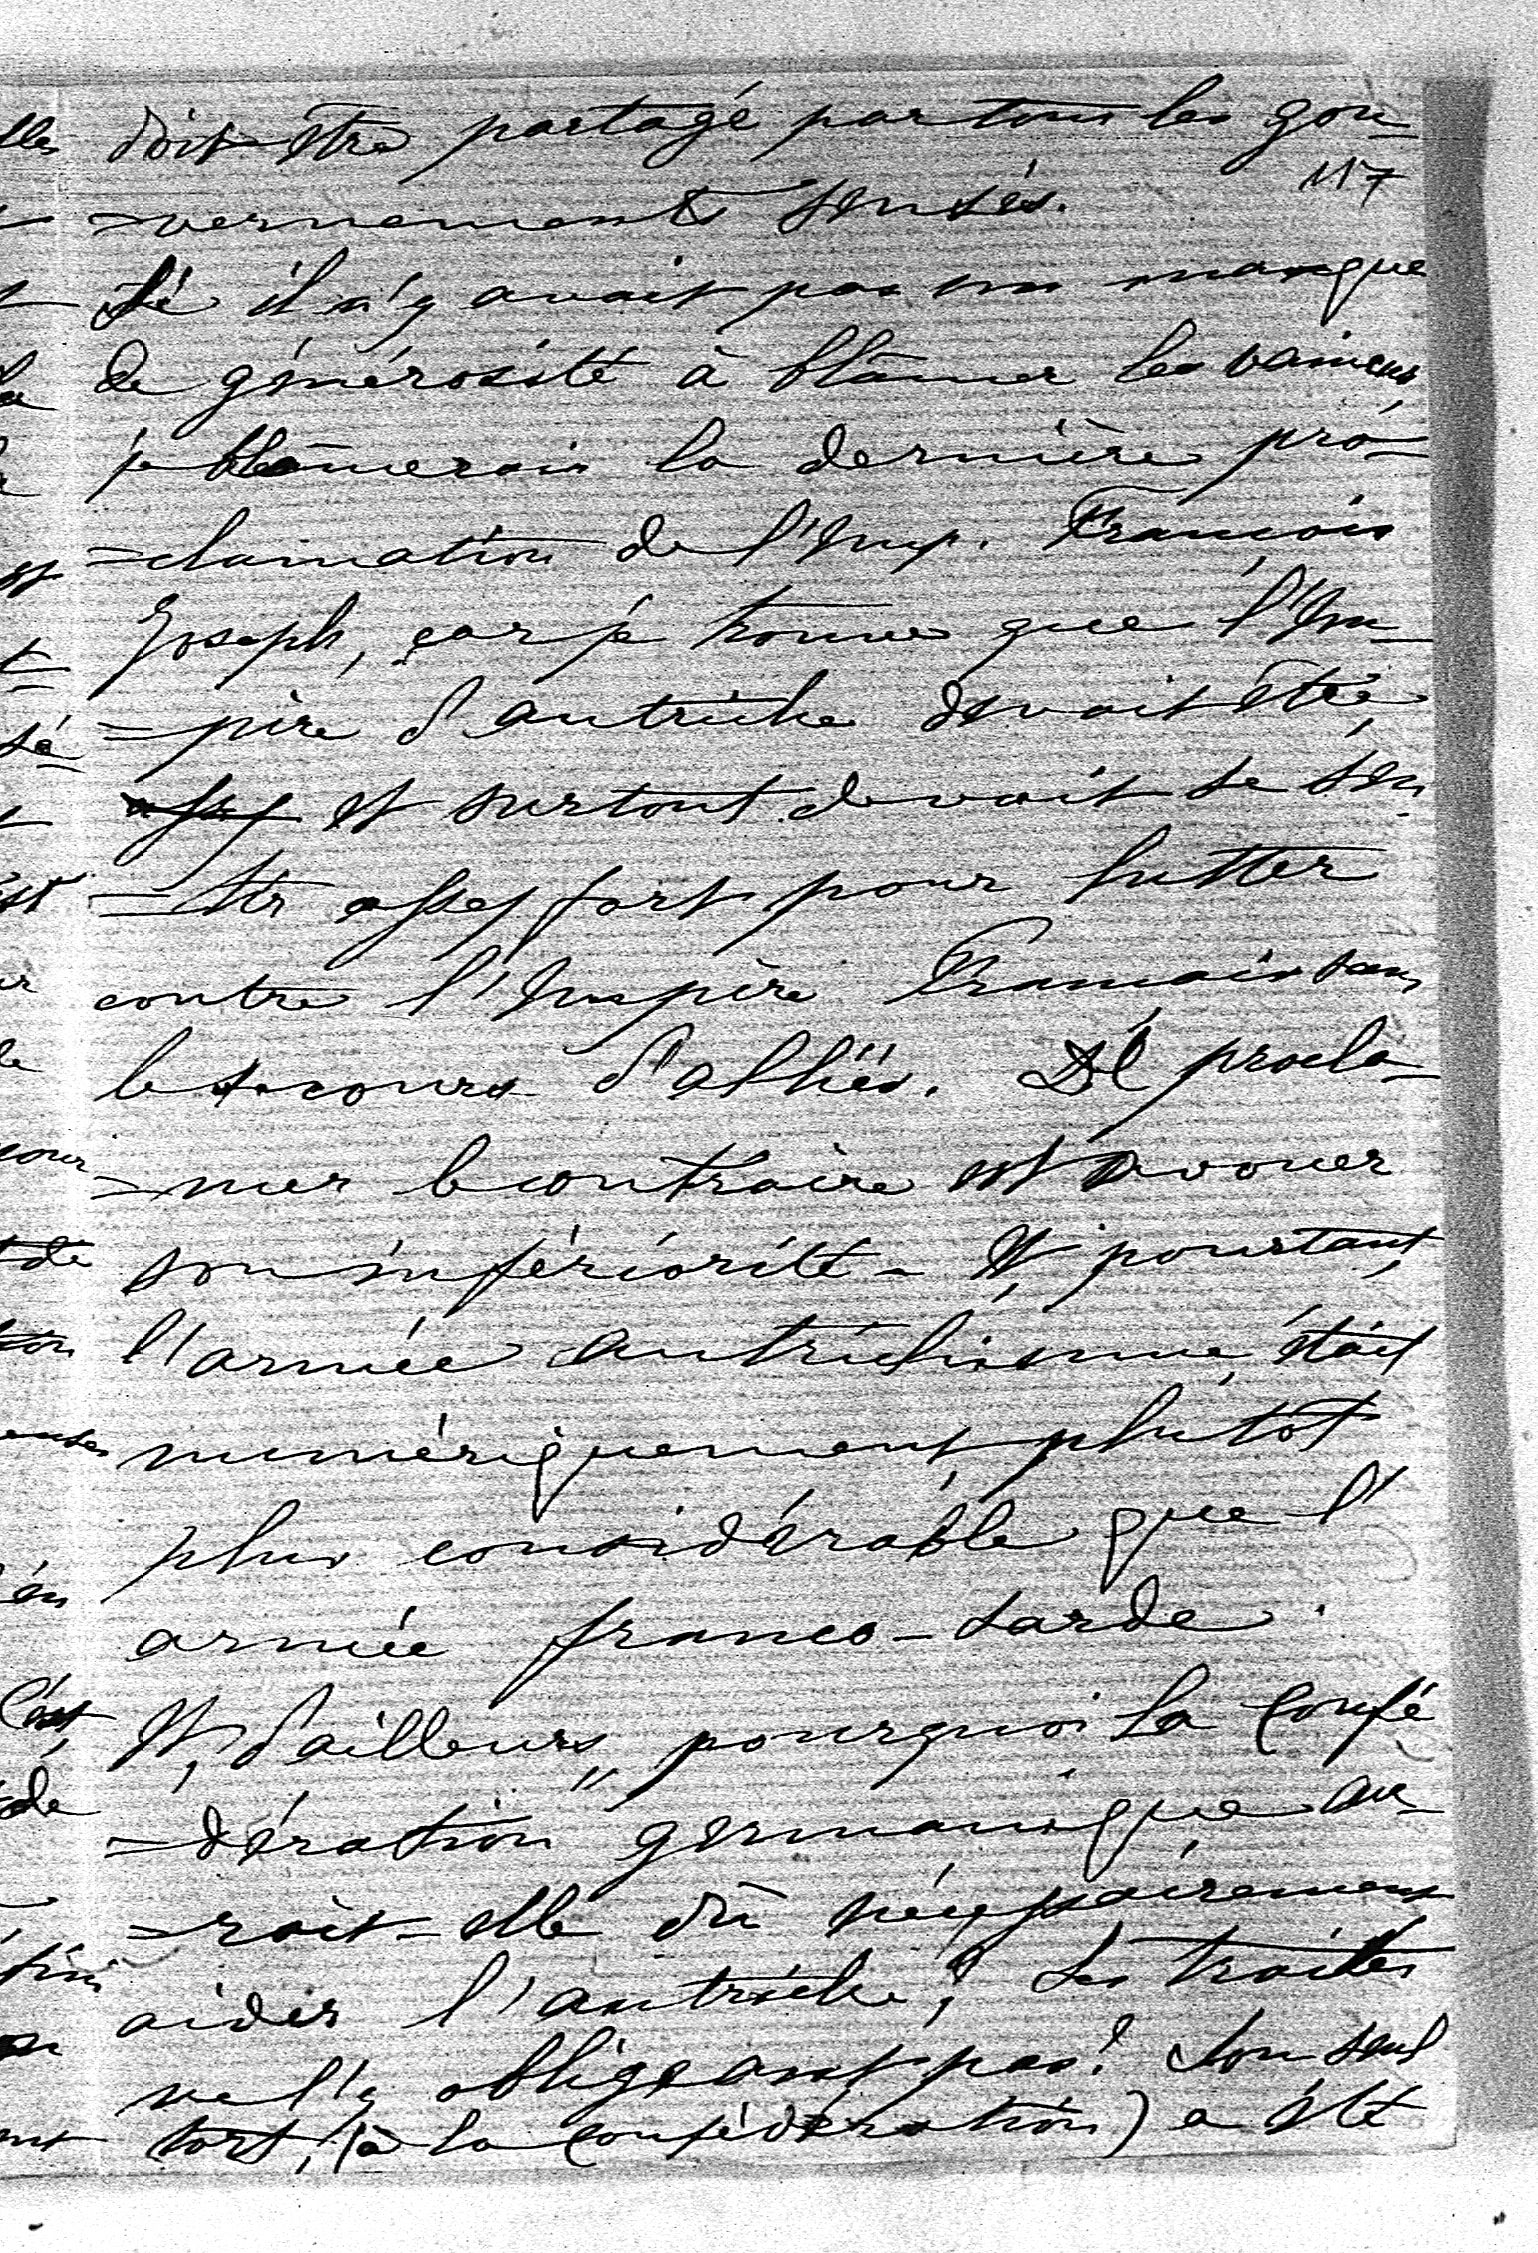 doit être partagé par tous les gou-
117
=vernements sensés.
Si il n'y avait pas un manque
de générosité à blâmer les vaincus,
je blâmerais la dernière pro-
=clamation de l'Emp. François
Joseph, car je trouve que l'Em-
=pire d'autriche devait être
et surtout devait se sen-
=tir assez fort pour lutter
contre l'Empire Français sans
le secours d'alliés. Le procla-
=mer le contraire est avouer
son infériorité - Et, pourtant,
l'armée autrichienne était
numériquement plutôt
plus considérable que l'
armée franco-sarde.
Et, d'ailleurs, pourquoi la Confé
=dération germanique au-
=rait-elle dû nécessairement
aider l'autriche? Les traités
ne l'y obligeant pas? Son seul
tort, (à la Confédération) a été